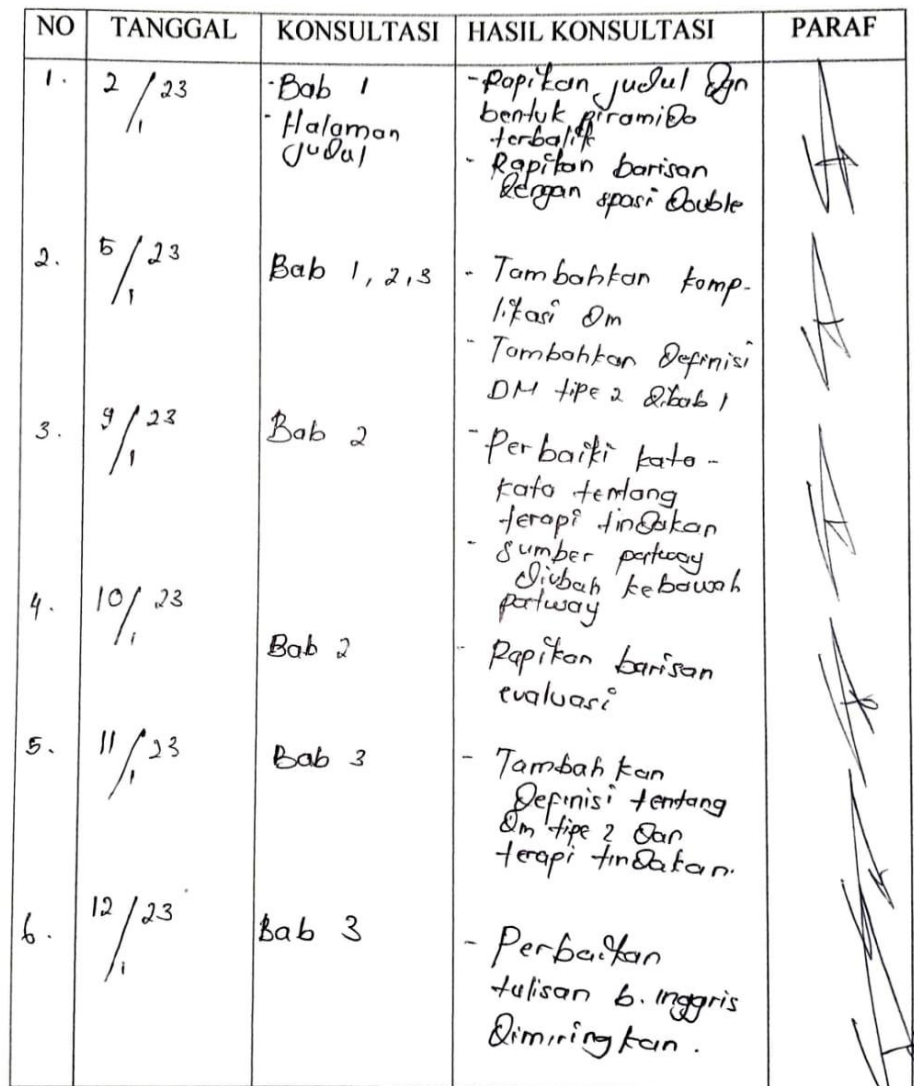 NO TANGGAL KONSULTASI HASIL KONSULTASI PARAF
1. 2/1 23 - Bab 1 - Rapikan judul dgn
- Halaman bentuk piramida
judul terbalik
- Rapikan barisan
dengan spasi double
2. 5/1 23 Bab 1, 2, 3 - Tambahkan komp-
likasi Dm
- Tambahkan Definisi
DM tipe 2 dibab 1
3. 9/1 23 Bab 2 - Perbaiki kata-
kata tentang
terapi tindakan
- Sumber patway
diubah kebawah
patway
4. 10/1 23 Bab 2 - Rapikan barisan
evaluasi
5. 11/1 23 Bab 3 - Tambahkan
Definisi tentang
Dm tipe 2 dan
terapi tindakan.
6. 12/1 23 Bab 3 - Perbaikan
tulisan b. inggris
dimiringkan.